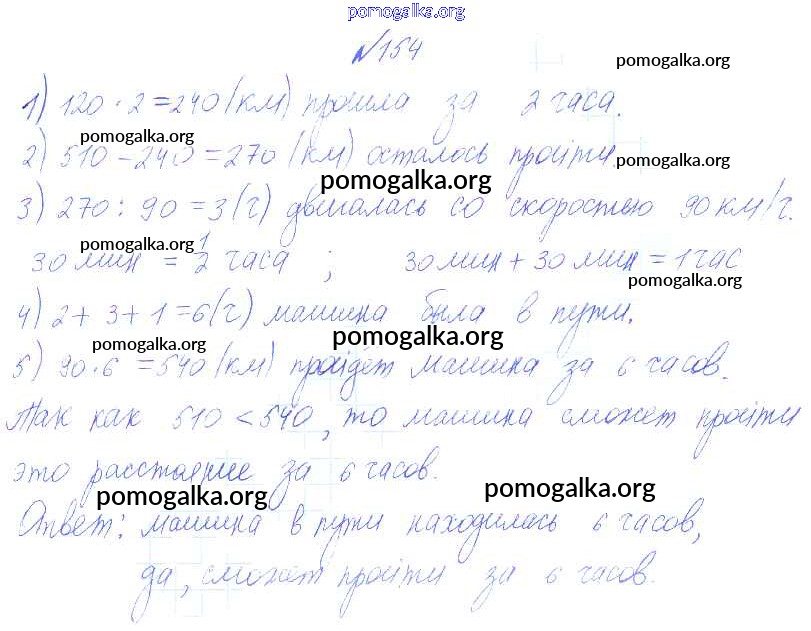 pomogalka.org
№154
pomogalka.org
1) 120 · 2 = 240 (км) прошла за 2 часа.
pomogalka.org
2) 510 - 240 = 270 (км) осталось пройти.
pomogalka.org
pomogalka.org
3) 270 : 90 = 3 (ч) двигалась со скоростью 90 км/ч.
pomogalka.org
30 мин = 1/2 часа ; 30 мин + 30 мин = 1 час
pomogalka.org
4) 2 + 3 + 1 = 6 (ч) машина была в пути.
pomogalka.org
pomogalka.org
5) 90 · 6 = 540 (км) пройдёт машина за 6 часов.
Так как 510 < 540, то машина сможет пройти
это расстояние за 6 часов.
pomogalka.org
pomogalka.org
Ответ: машина в пути находилась 6 часов,
да, сможет пройти за 6 часов.